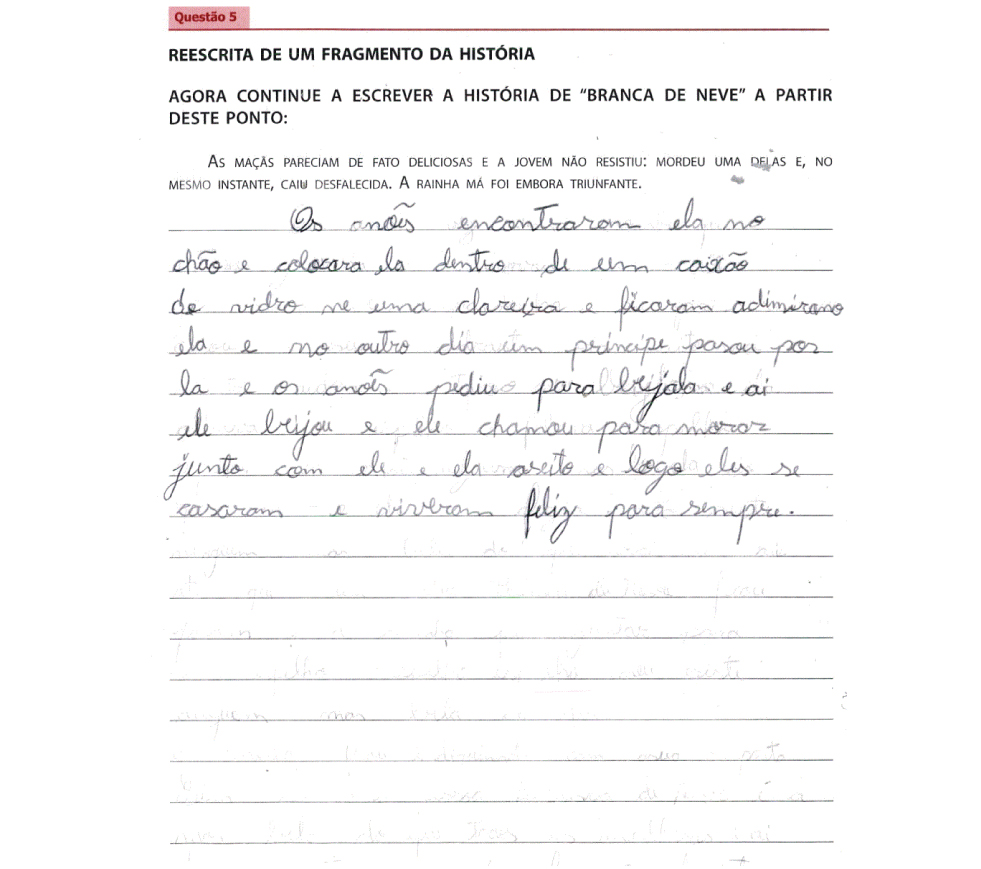 Questão 5
REESCRITA DE UM FRAGMENTO DA HISTÓRIA
AGORA CONTINUE A ESCREVER A HISTÓRIA DE “BRANCA DE NEVE” A PARTIR
DESTE PONTO:
AS MAÇÃS PARECIAM DE FATO DELICIOSAS E A JOVEM NÃO RESISTIU: MORDEU UMA DELAS E, NO
MESMO INSTANTE, CAIU DESFALECIDA. A RAINHA MÁ FOI EMBORA TRIUNFANTE.
Os anões encontraram ela no
chão e colocara ela dentro de um caixão
de vidro ne uma clareira e ficaram adimirano
ela e no outro dia um principe pasou por
la e os anões pediu para beijala e ai
ele beijou e ele chamou para morar
junto com ele e ela aseito e logo eles se
casaram e viveram feliz para sempre.